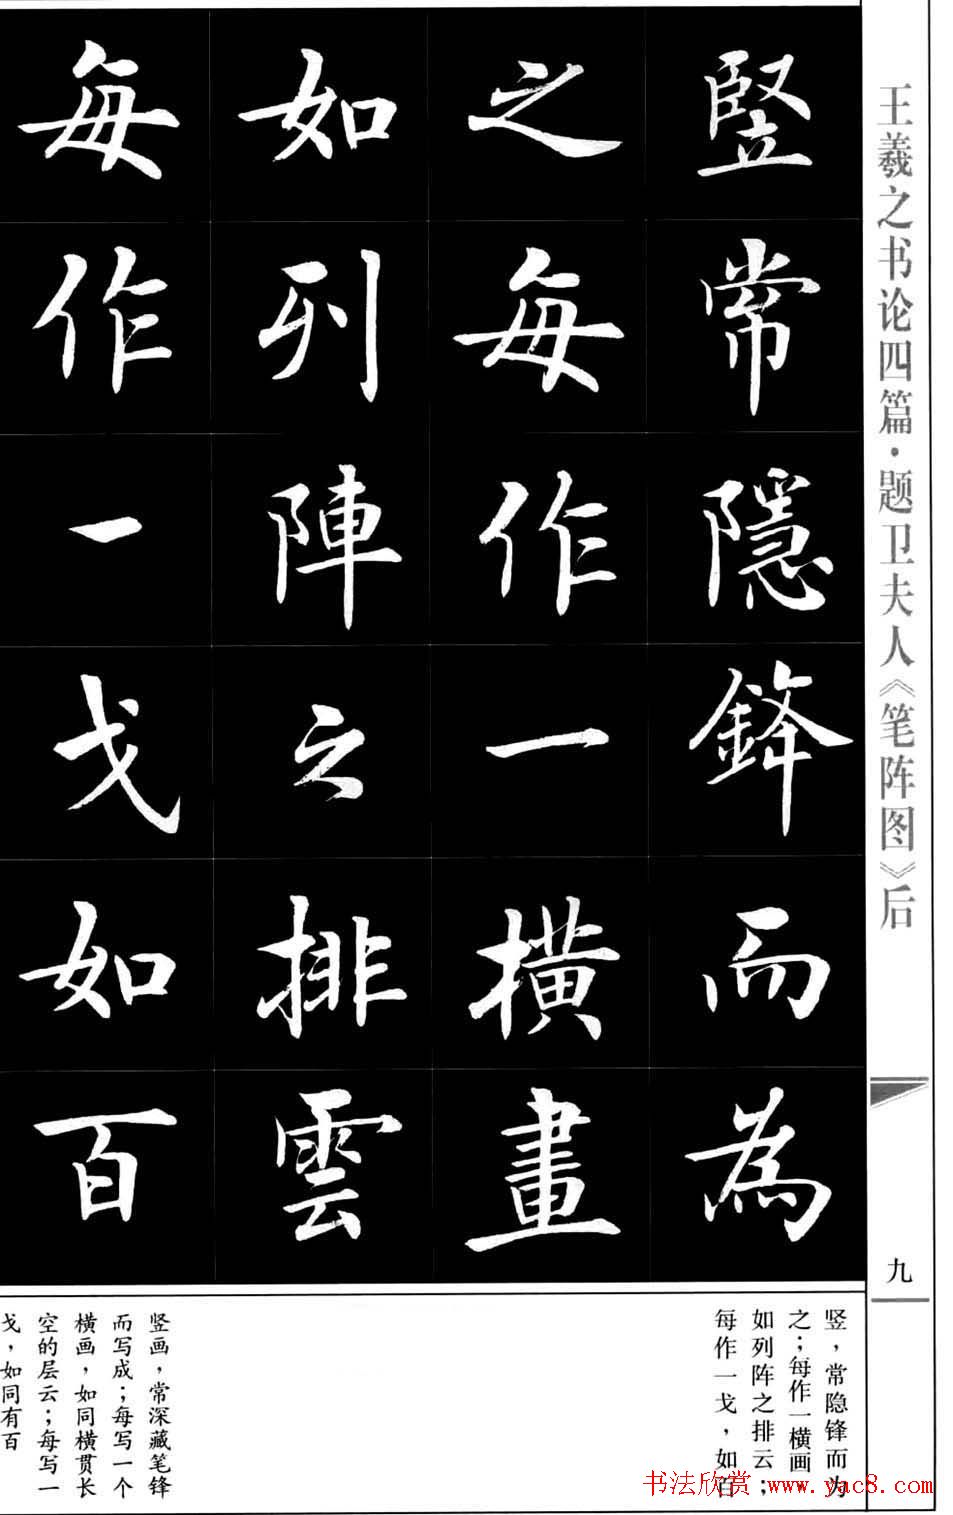 王羲之书论四篇·题卫夫人《笔阵图》后
九
竪常隱鋒而為
之每作一橫畫
如列陣之排雲
每作一戈如百
竖，常隐锋而为
之；每作一横画，
如列阵之排云；
每作一戈，如百
竖画，常深藏笔锋
而写成；每写一个
横画，如同横贯长
空的层云；每写一
戈，如同有百
书法欣赏 www.yac8.com